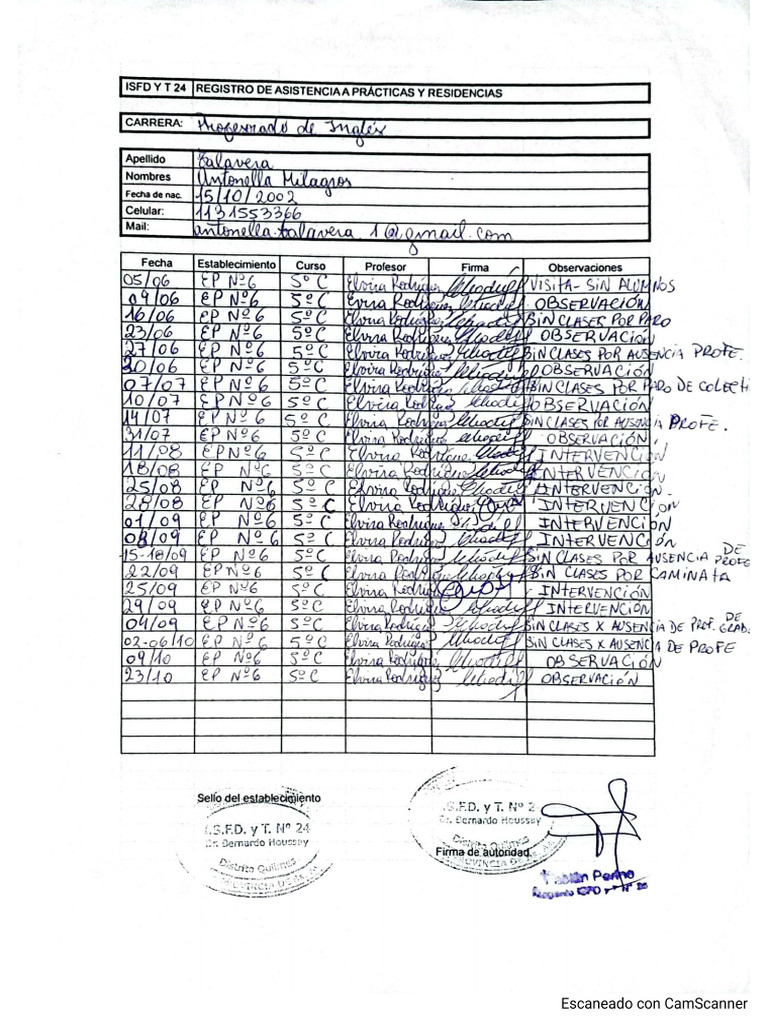 ISFD Y T 24 REGISTRO DE ASISTENCIA A PRÁCTICAS Y RESIDENCIAS
CARRERA: Profesorado de Inglés
Apellido Talavera
Nombres Antonella Milagros
Fecha de nac. 15/10/2002
Celular: 1131553366
Mail: antonella.talavera.1@gmail.com
Fecha Establecimiento Curso Profesor Firma Observaciones
05/06 EP Nº6 5º C Elvira Rodríguez VISITA- SIN ALUMNOS
09/06 EP Nº6 5º C Elvira Rodríguez OBSERVACIÓN
16/06 EP Nº6 5º C Elvira Rodríguez SIN CLASES POR PARO
23/06 EP Nº6 5º C Elvira Rodríguez OBSERVACIÓN
27/06 EP Nº6 5º C Elvira Rodríguez SIN CLASES POR AUSENCIA PROFE.
30/06 EP Nº6 5º C Elvira Rodríguez OBSERVACIÓN
07/07 EP Nº6 5º C Elvira Rodríguez SIN CLASES POR PARO DE COLECTI
10/07 EP Nº6 5º C Elvira Rodríguez OBSERVACIÓN
14/07 EP Nº6 5º C Elvira Rodríguez SIN CLASES POR AUSENCIA PROFE.
31/07 EP Nº6 5º C Elvira Rodríguez OBSERVACIÓN
11/08 EP Nº6 5º C Elvira Rodríguez INTERVENCIÓN
18/08 EP Nº6 5º C Elvira Rodríguez INTERVENCIÓN
25/08 EP Nº6 5º C Elvira Rodríguez INTERVENCIÓN.
28/08 EP Nº6 5º C Elvira Rodríguez INTERVENCIÓN
01/09 EP Nº6 5º C Elvira Rodríguez INTERVENCIÓN
08/09 EP Nº6 5º C Elvira Rodríguez INTERVENCIÓN
15-18/09 EP Nº6 5º C Elvira Rodríguez SIN CLASES POR AUSENCIA DE PROFE
22/09 EP Nº6 5º C Elvira Rodríguez SIN CLASES POR CAMINATA
25/09 EP Nº6 5º C Elvira Rodríguez INTERVENCIÓN
29/09 EP Nº6 5º C Elvira Rodríguez INTERVENCIÓN
04/09 EP Nº6 5º C Elvira Rodríguez SIN CLASES X AUSENCIA DE PROF. DE GRAD.
02-06/10 EP Nº6 5º C Elvira Rodríguez SIN CLASES X AUSENCIA DE PROFE
09/10 EP Nº6 5º C Elvira Rodríguez OBSERVACIÓN
23/10 EP Nº6 5º C Elvira Rodríguez OBSERVACIÓN
Sello del establecimiento
I.S.F.D. y T. Nº 24
Dr. Bernardo Houssay
Distrito Quilmes
PROVINCIA DE BS. AS.
I.S.F.D. y T. Nº 2
Dr. Bernardo Houssay
Distrito Quilmes
PROVINCIA DE BS. AS.
Firma de autoridad.
Fabián Perino
Regente ISFD y T Nº 24
Escaneado con CamScanner